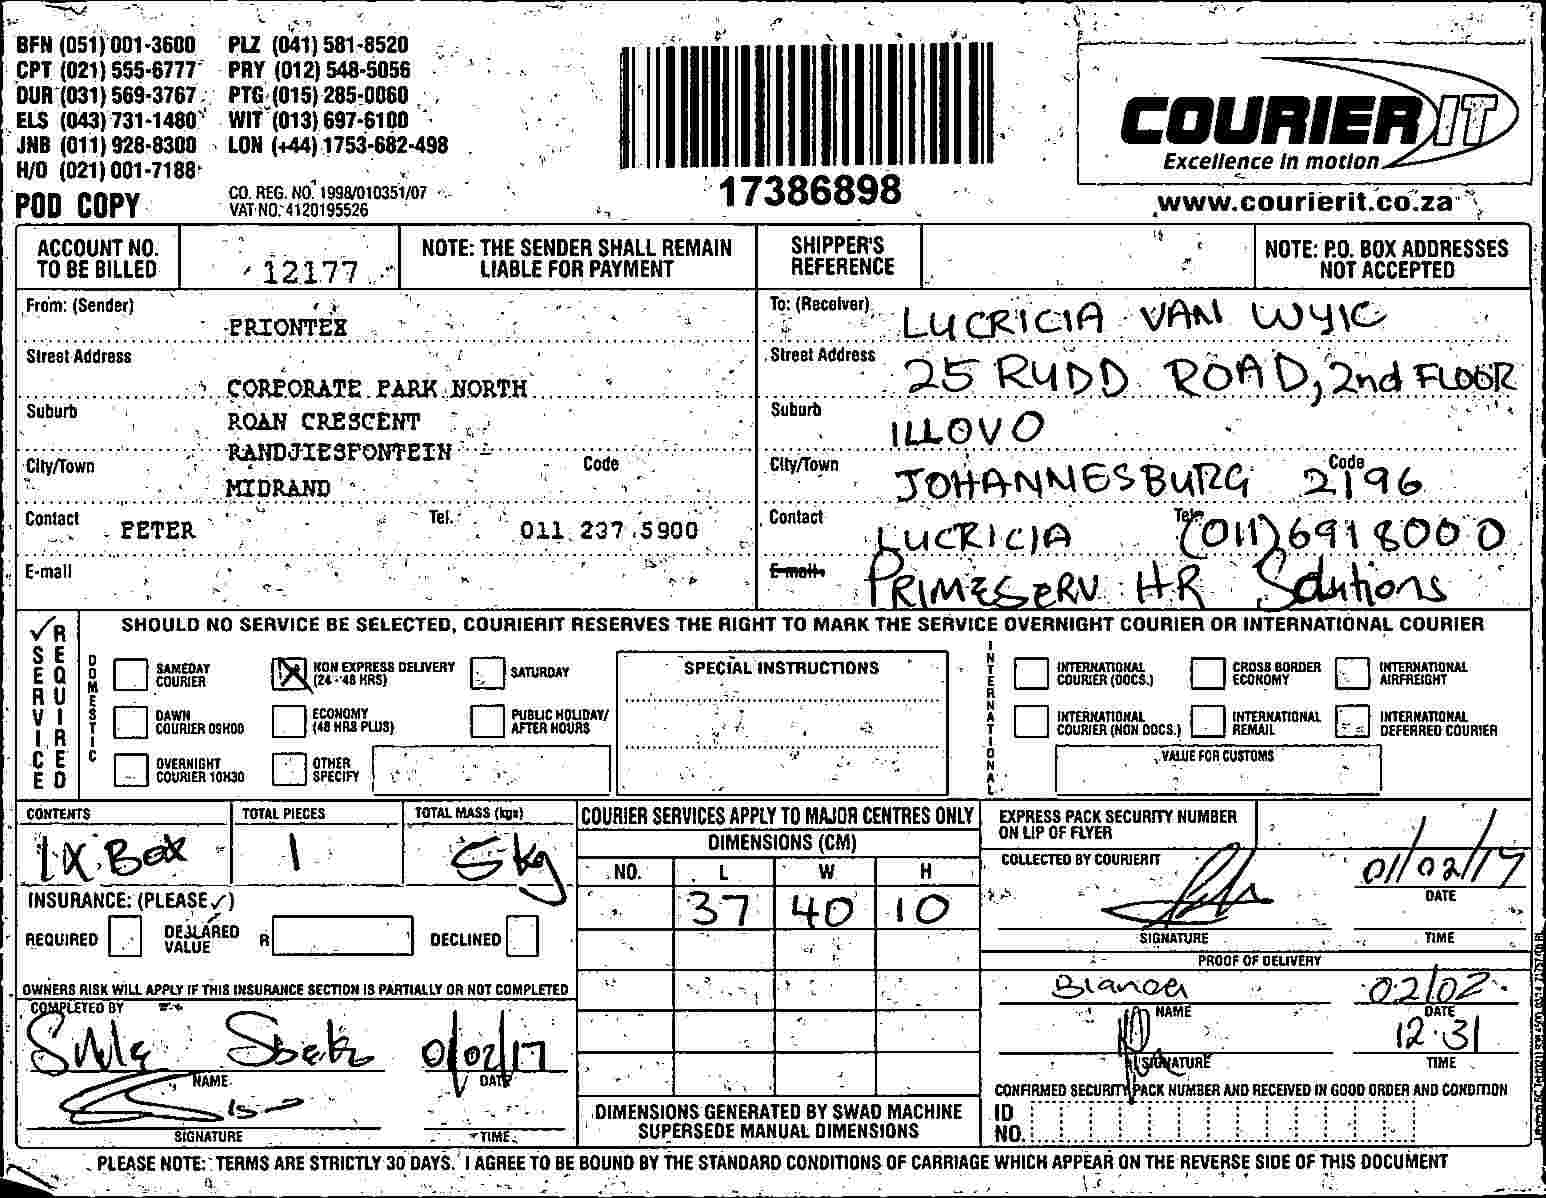 BFN (051) 001-3600 PLZ (041) 581-8520
CPT (021) 555-6777 PRY (012) 548-5056
DUR (031) 569-3767 PTG (015) 285-0060
ELS (043) 731-1480 WIT (013) 697-6100
JNB (011) 928-8300 LON (+44) 1753-682-498
H/O (021) 001-7188
POD COPY
CO. REG. NO. 1998/010351/07
VAT NO. 4120195526
17386898
COURIER IT
Excellence in motion
www.courierit.co.za
ACCOUNT NO. TO BE BILLED 12177
NOTE: THE SENDER SHALL REMAIN LIABLE FOR PAYMENT
SHIPPER'S REFERENCE
NOTE: P.O. BOX ADDRESSES NOT ACCEPTED
From: (Sender) PRIONTEX
Street Address
CORPORATE PARK NORTH
Suburb ROAN CRESCENT
RANDJIESFONTEIN
City/Town Code
MIDRAND
Contact PETER Tel. 011 237 5900
E-mail
To: (Receiver) LUCRICIA VAN WYK
Street Address 25 RUDD ROAD, 2nd FLOOR
Suburb ILLOVO
City/Town JOHANNESBURG Code 2196
Contact LUCRICIA Tel. (011) 691 8000
E-mail PRIMESERV HR Solutions
SERVICE REQUIRED
SHOULD NO SERVICE BE SELECTED, COURIERIT RESERVES THE RIGHT TO MARK THE SERVICE OVERNIGHT COURIER OR INTERNATIONAL COURIER
DOMESTIC
SAMEDAY COURIER
NON EXPRESS DELIVERY (24 - 48 HRS)
SATURDAY
DAWN COURIER 09H00
ECONOMY (48 HRS PLUS)
PUBLIC HOLIDAY/ AFTER HOURS
OVERNIGHT COURIER 10H30
OTHER SPECIFY
SPECIAL INSTRUCTIONS
INTERNATIONAL
INTERNATIONAL COURIER (DOCS.)
CROSS BORDER ECONOMY
INTERNATIONAL AIRFREIGHT
INTERNATIONAL COURIER (NON DOCS.)
INTERNATIONAL REMAIL
INTERNATIONAL DEFERRED COURIER
VALUE FOR CUSTOMS
CONTENTS TOTAL PIECES TOTAL MASS (kgs)
1 X Box 1 5kg
INSURANCE: (PLEASE ✓)
REQUIRED DECLARED VALUE R DECLINED
OWNERS RISK WILL APPLY IF THIS INSURANCE SECTION IS PARTIALLY OR NOT COMPLETED
COMPLETED BY
01/02/17
NAME DATE
SIGNATURE TIME
COURIER SERVICES APPLY TO MAJOR CENTRES ONLY
DIMENSIONS (CM)
NO. L W H
37 40 10
DIMENSIONS GENERATED BY SWAD MACHINE SUPERSEDE MANUAL DIMENSIONS
EXPRESS PACK SECURITY NUMBER ON LIP OF FLYER
COLLECTED BY COURIERIT
01/02/17
DATE
SIGNATURE TIME
PROOF OF DELIVERY
Bianca 02/02
NAME DATE
12.31
SIGNATURE TIME
CONFIRMED SECURITY PACK NUMBER AND RECEIVED IN GOOD ORDER AND CONDITION
ID NO.
PLEASE NOTE: TERMS ARE STRICTLY 30 DAYS. I AGREE TO BE BOUND BY THE STANDARD CONDITIONS OF CARRIAGE WHICH APPEAR ON THE REVERSE SIDE OF THIS DOCUMENT